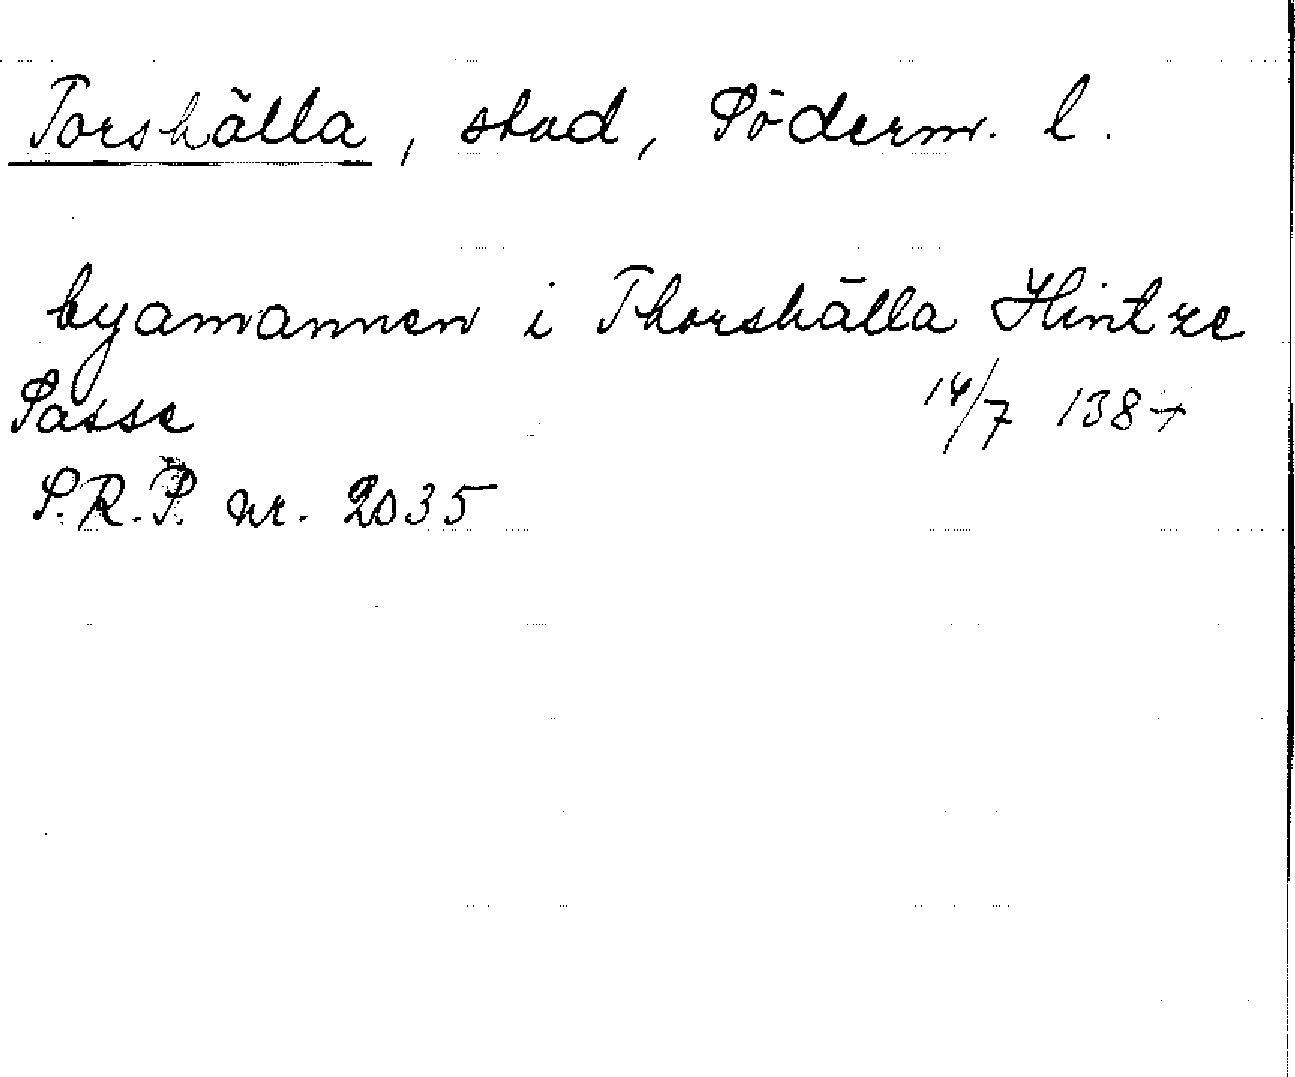 Torshälla, stad, Söderm. l.
byamannen i Thorshälla Hintze
Passe 14/7 1387
S.R.P. nr. 2035